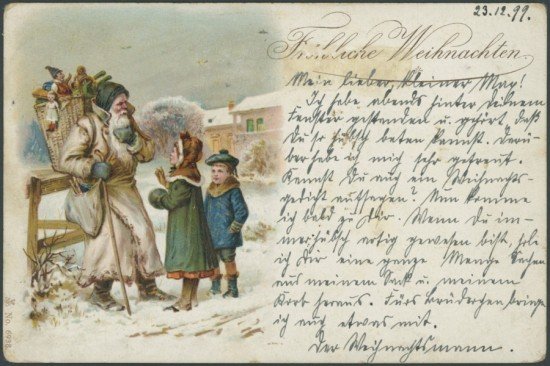 23.12.99.
Fröhliche Weihnachten.
Mein lieber kleiner Max!
Ich habe abends hinter Deinem
Fenster gestanden u. gehört, daß
Du so hübsch beten kannst. Darü-
ber habe ich mich sehr gefreut.
Kannst Du auch ein Weihnachts-
gedicht aufsagen? Nun komme
ich bald zu Dir. Wenn Du im-
mer hübsch artig gewesen bist, hole
ich Dir eine ganze Menge Sachen
aus meinem Sack u. meinem
Korb heraus. Fürs Brüderchen bringe
ich auch etwas mit.
Der Weihnachtsmann.
No. 6928.